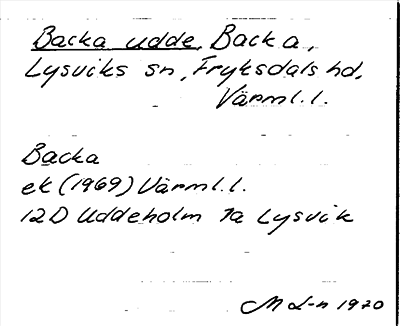 Backa udde, Backa,
Lysviks sn, Fryksdals hd,
Värml.l.
Backa
ek (1969) Värml.l.
12D Uddeholm 7a Lysvik
M L-n 1970